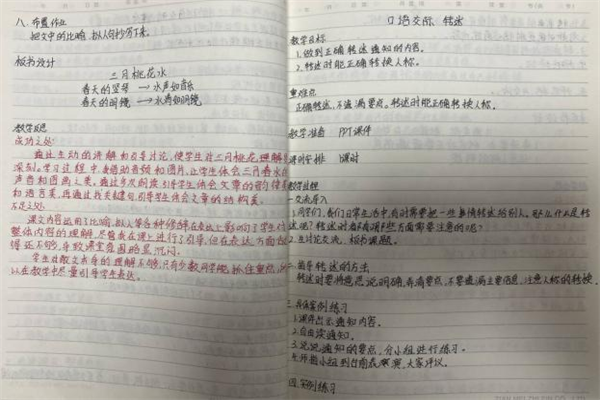 八、布置作业
把文中的比喻、拟人句抄写下来。
板书设计
三月桃花水
春天的竖琴 → 水声如音乐
春天的明镜 → 水清如明镜
教学反思
成功之处:
通过生动的讲解和引导讨论,使学生对三月桃花水理解
深刻。学习过程中我借助音频和图片,让学生体会三月春水的
声音和图画之美。通过多次朗读,引导学生体会文章的韵律
和语言美,再通过找关键句,引导学生体会文章的结构美。
不足之处:
课文内容运用了比喻、拟人等各种修辞
整体内容的理解,尽管我在课上进行了引导,但在表达方面
得还不够,导致课堂氛围略显沉闷。
学生对散文本身的理解不够,只有少数同学能抓住重点,
以在教学中尽量引导学生表达。
口语交际 转述
教学目标
1.做到正确转述通知的内容。
2.转述时能正确转换人称。
重难点
正确转述,不遗漏要点。转述时能正确转换人称。
教学准备 PPT课件
课时安排 1课时
教学过程
一、交流导入
1.同学们,我们日常生活中,有时需要把一些事情转述给别人。那么,什么是转
述呢?转述时都有哪些方面需要注意的呢?
2.生讨论交流,板书课题。
二、指导转述的方法
转述时要将意思说明确,弄清要点,不要遗漏主要信息,注意人称的转换。
三、具体案例练习
1.课件出示通知内容。
2.自由读通知。
3.说说通知的要点,分小组进行练习。
4.评指小组到台前表演,大家评议。
四、实例练习